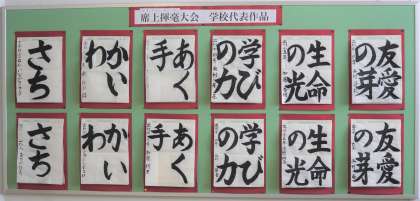 席上揮毫大会 学校代表作品
友愛の芽
生命の光
学びの力
あく手
かいわ
さち
友愛の芽
生命の光
学びの力
あく手
かいわ
さち